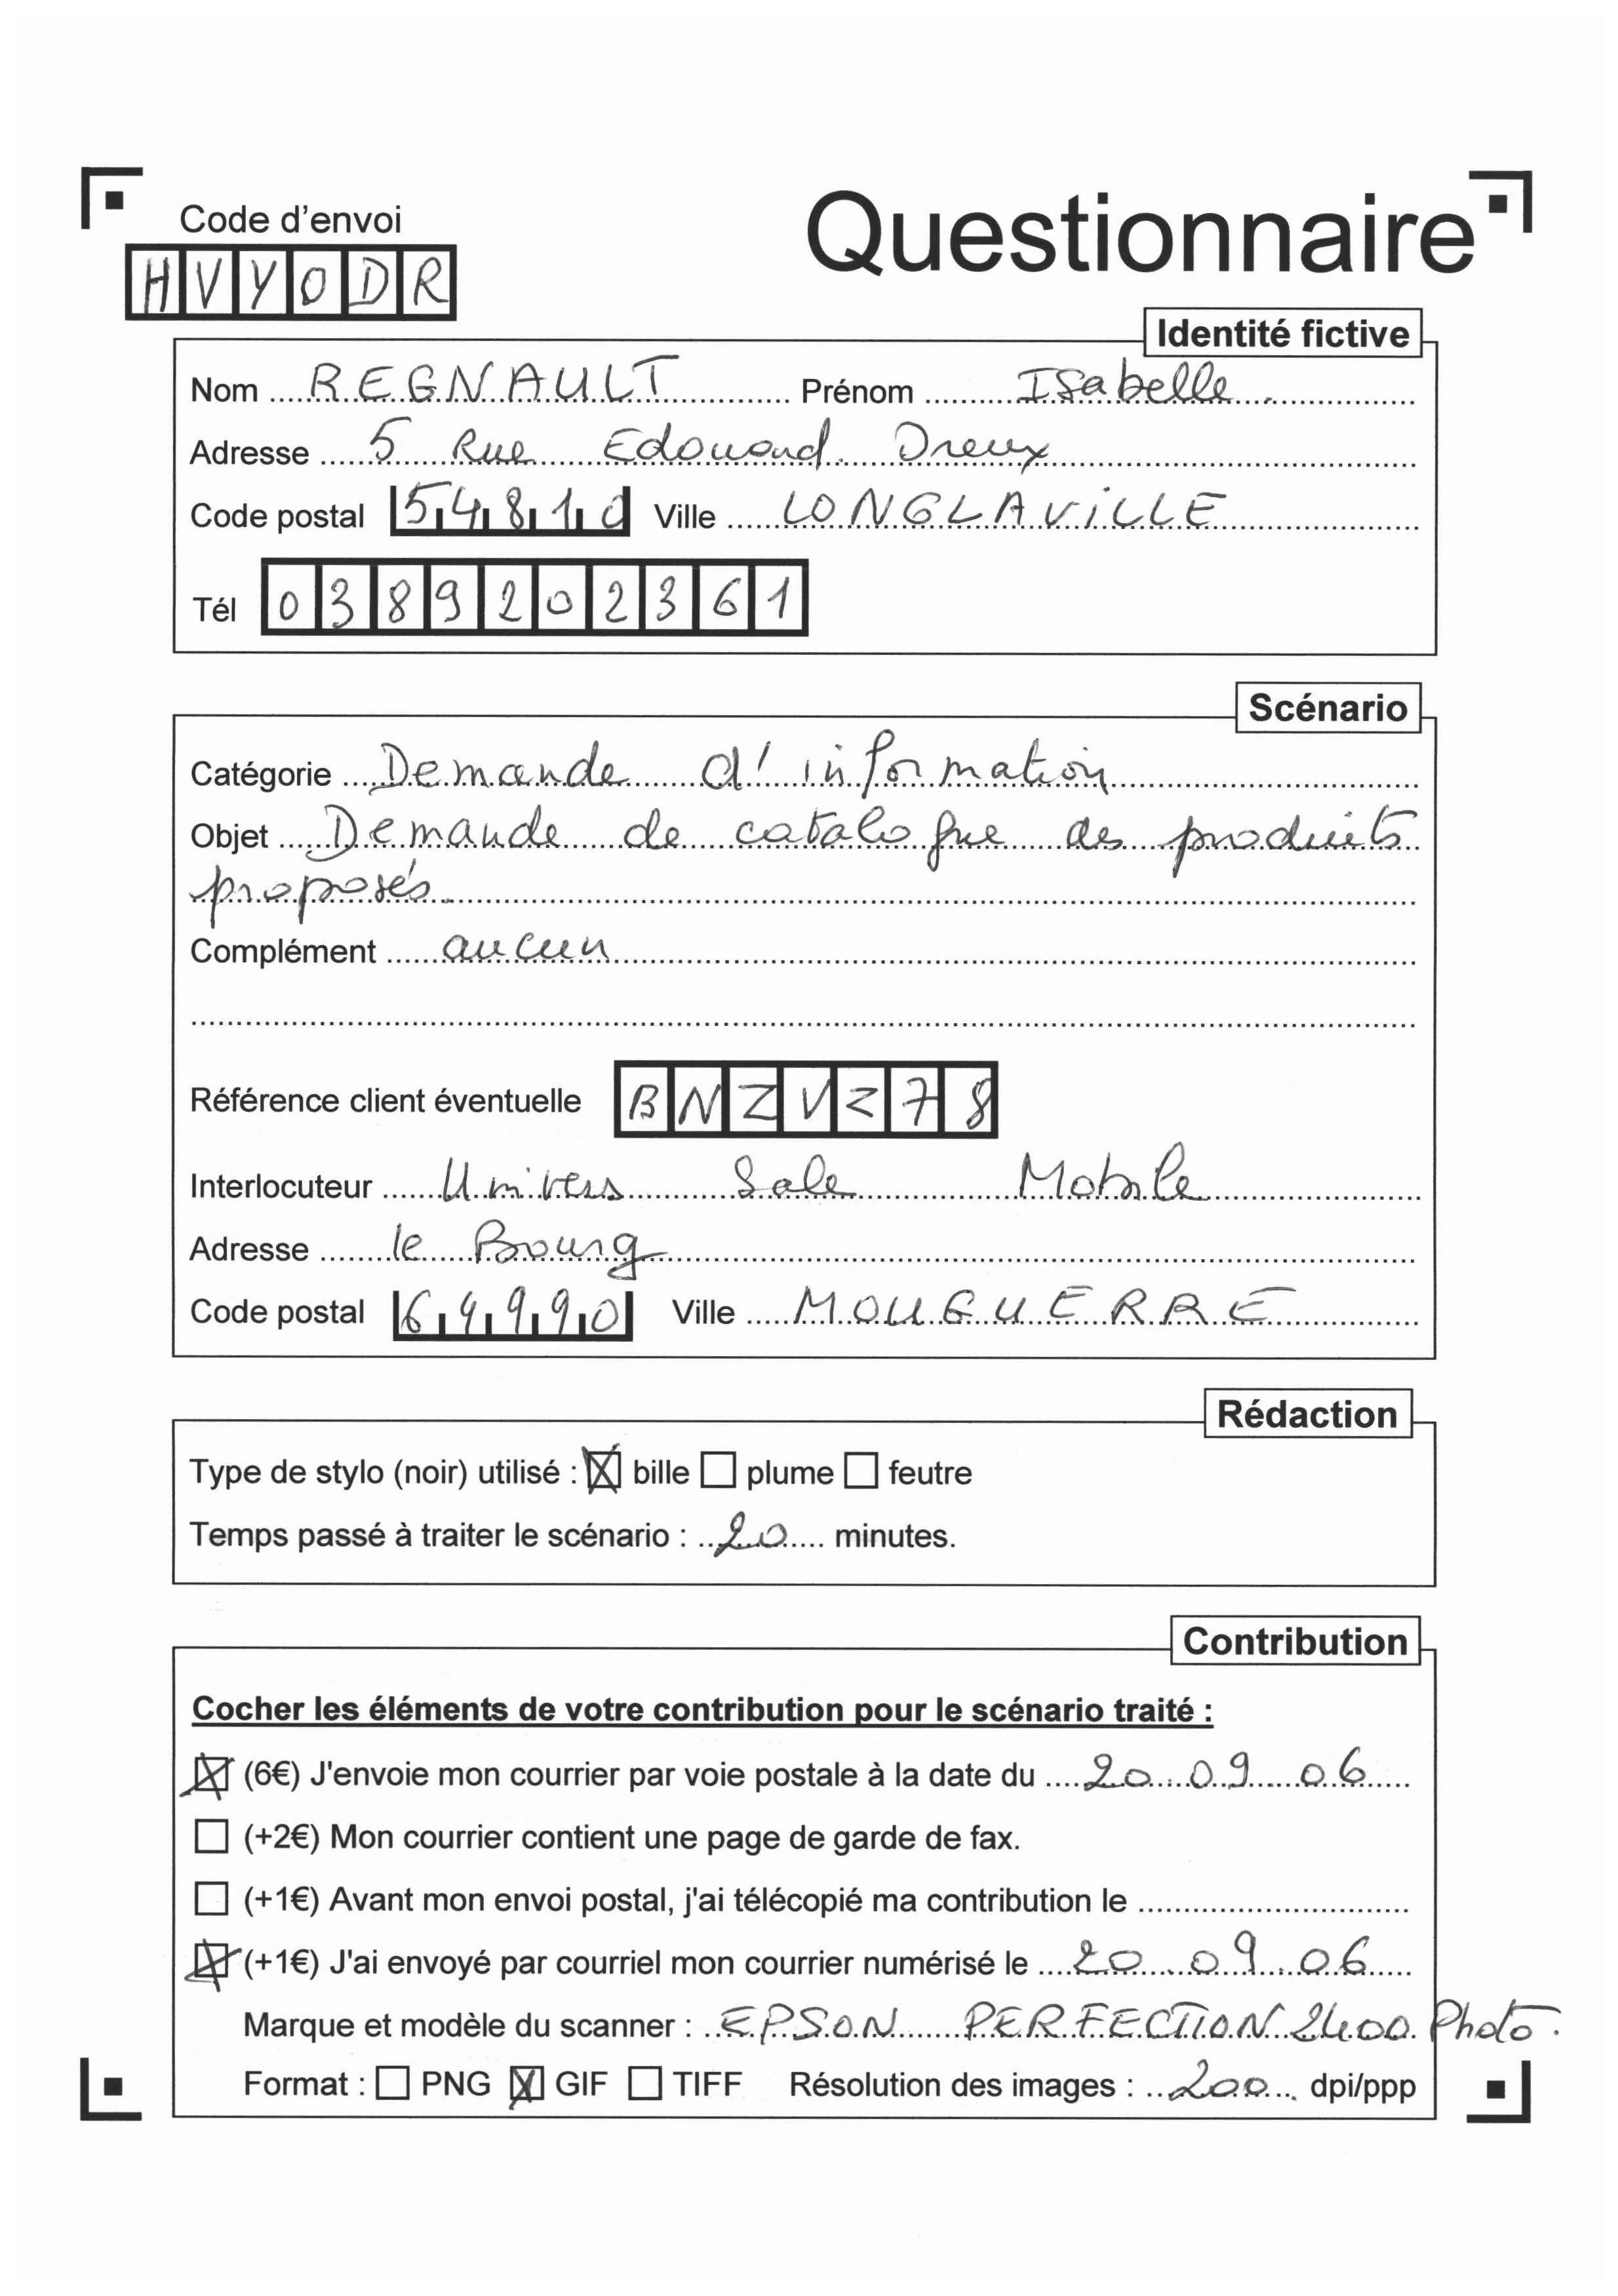 Code d'envoi
Questionnaire
HVYODR
Identité fictive
Nom REGNAULT Prénom Isabelle
Adresse 5 Rue Edouard Dreux
Code postal 54810 Ville LONGLAVILLE
Tél 0389202361
Scénario
Catégorie Demande d'information
Objet Demande de catalogue des produits
proposés
Complément aucun
Référence client éventuelle BNZVZ78
Interlocuteur Univers Sale Mobile
Adresse le Bourg
Code postal 64990 Ville MOUGUERRE
Rédaction
Type de stylo (noir) utilisé : bille plume feutre
Temps passé à traiter le scénario : 20 minutes.
Contribution
Cocher les éléments de votre contribution pour le scénario traité :
(6€) J'envoie mon courrier par voie postale à la date du 20.09.06
(+2€) Mon courrier contient une page de garde de fax.
(+1€) Avant mon envoi postal, j'ai télécopié ma contribution le
(+1€) J'ai envoyé par courriel mon courrier numérisé le 20.09.06
Marque et modèle du scanner : EPSON PERFECTION 2400 Photo.
Format : PNG GIF TIFF Résolution des images : 200 dpi/ppp